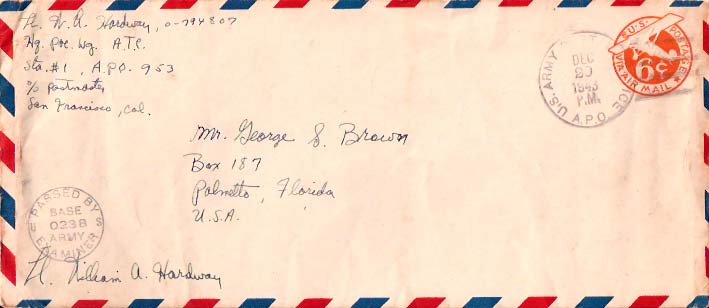 Lt. W. A. Hardway, O-794807
Hq. Pac. Wg. A.T.C.
Sta. #1, A.P.O. 953
c/o Postmaster
San Francisco, Cal.
U.S. ARMY
DEC
29
1943
P.M.
A.P.O.
U.S. POSTAGE
6¢
VIA AIR MAIL
Mr. George S. Brown
Box 187
Palmetto, Florida
U.S.A.
PASSED BY
BASE
0238
ARMY
EXAMINER
Lt. William A. Hardway